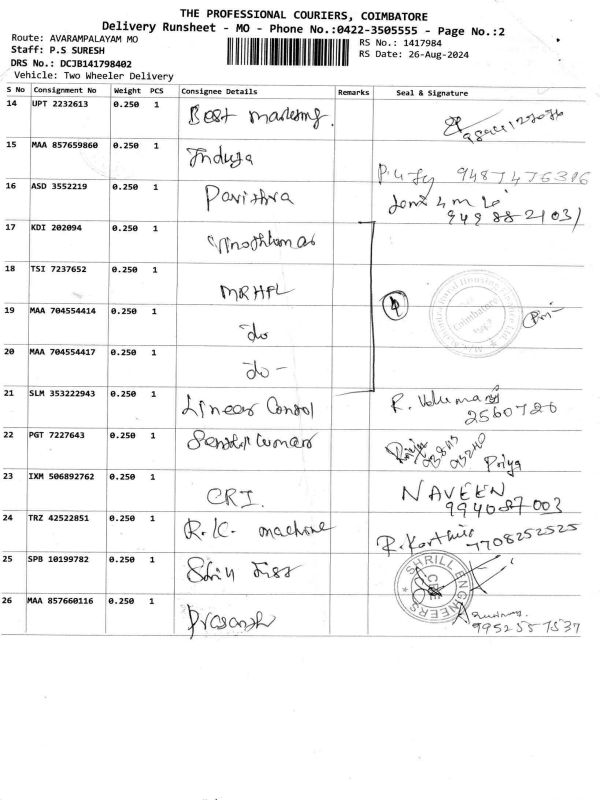 THE PROFESSIONAL COURIERS, COIMBATORE
Delivery Runsheet - MO - Phone No.:0422-3505555 - Page No.:2
Route: AVARAMPALAYAM MO
RS No.: 1417984
Staff: P.S SURESH
RS Date: 26-Aug-2024
DRS No.: DCJB141798402
Vehicle: Two Wheeler Delivery
S No Consignment No Weight PCS Consignee Details Remarks Seal & Signature
14 UPT 2232613 0.250 1 Best marketing
15 MAA 857659860 0.250 1 Induja 9487476316
16 ASD 3552219 0.250 1 Pavithra
17 KDI 202094 0.250 1
18 TSI 7237652 0.250 1 MRHFL 4
19 MAA 704554414 0.250 1 do
20 MAA 704554417 0.250 1 do -
21 SLM 353222943 0.250 1 Linear Control 2560726
22 PGT 7227643 0.250 1 Senthil kumar Priya
23 IXM 506892762 0.250 1 CRI. NAVEEN
994087003
24 TRZ 42522851 0.250 1 R.K. machine R. Karthi 7708252525
25 SPB 10199782 0.250 1 SHRILL ENGINEERS CBE
26 MAA 857660116 0.250 1 Prasanth 9952557537